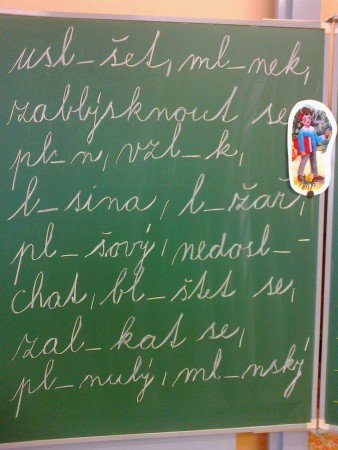 usl_šet, ml_nek,
zablýsknout se,
pl_n, vzl_k,
l_sina, l_žař,
pl_šový, nedosl_-
chat, bl_štet se,
zal_kat se,
pl_nulý, ml_nský